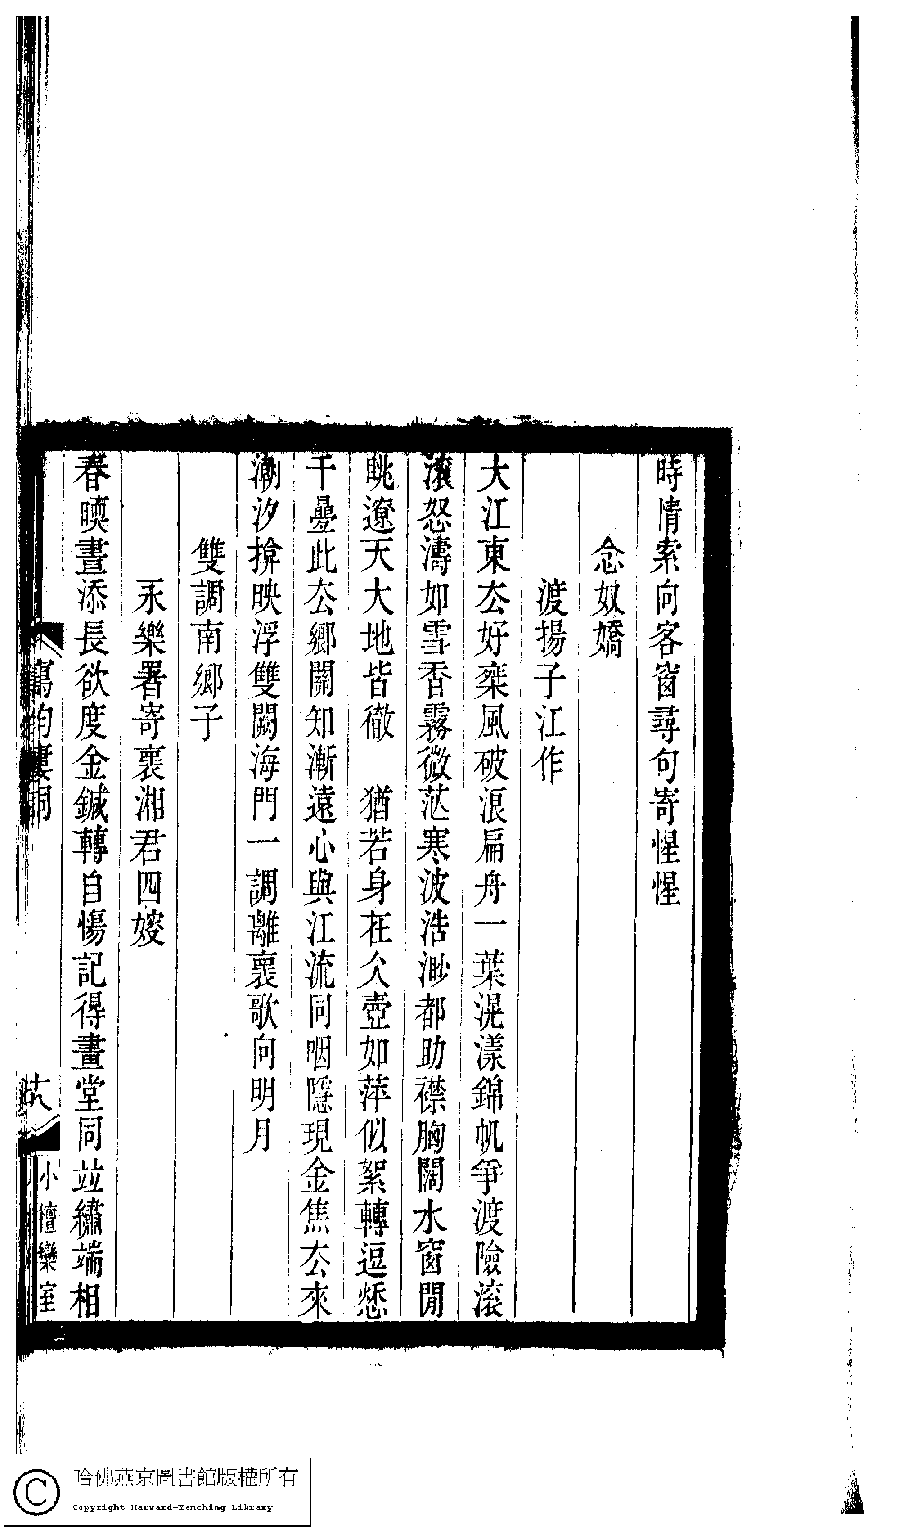 時情索向客窗尋句寄惺惺
念奴嬌
渡揚子江作
大江東厺好椉風破浪扁舟一葉滉漾錦帆爭渡險滾
滾怒濤如雪香霧微茫寒波浩渺都助襟胸闊水窗閒
眺遼天大地皆徹　猶若身在仌壺如萍似絮轉逗愁
千疊此厺鄉關知漸遠心與江流同咽隱現金焦厺來
潮汐揜映浮雙闕海門一調離褱歌向明月
雙調南鄉子
永樂署寄褱湘君四嫂
春暎晝添長欲度金鍼轉自傷記得畫堂同竝繡端相
寫韵樓詞
十八
小檀欒室
哈佛燕京圖書館版權所有
Copyright Harvard-Yenching Library